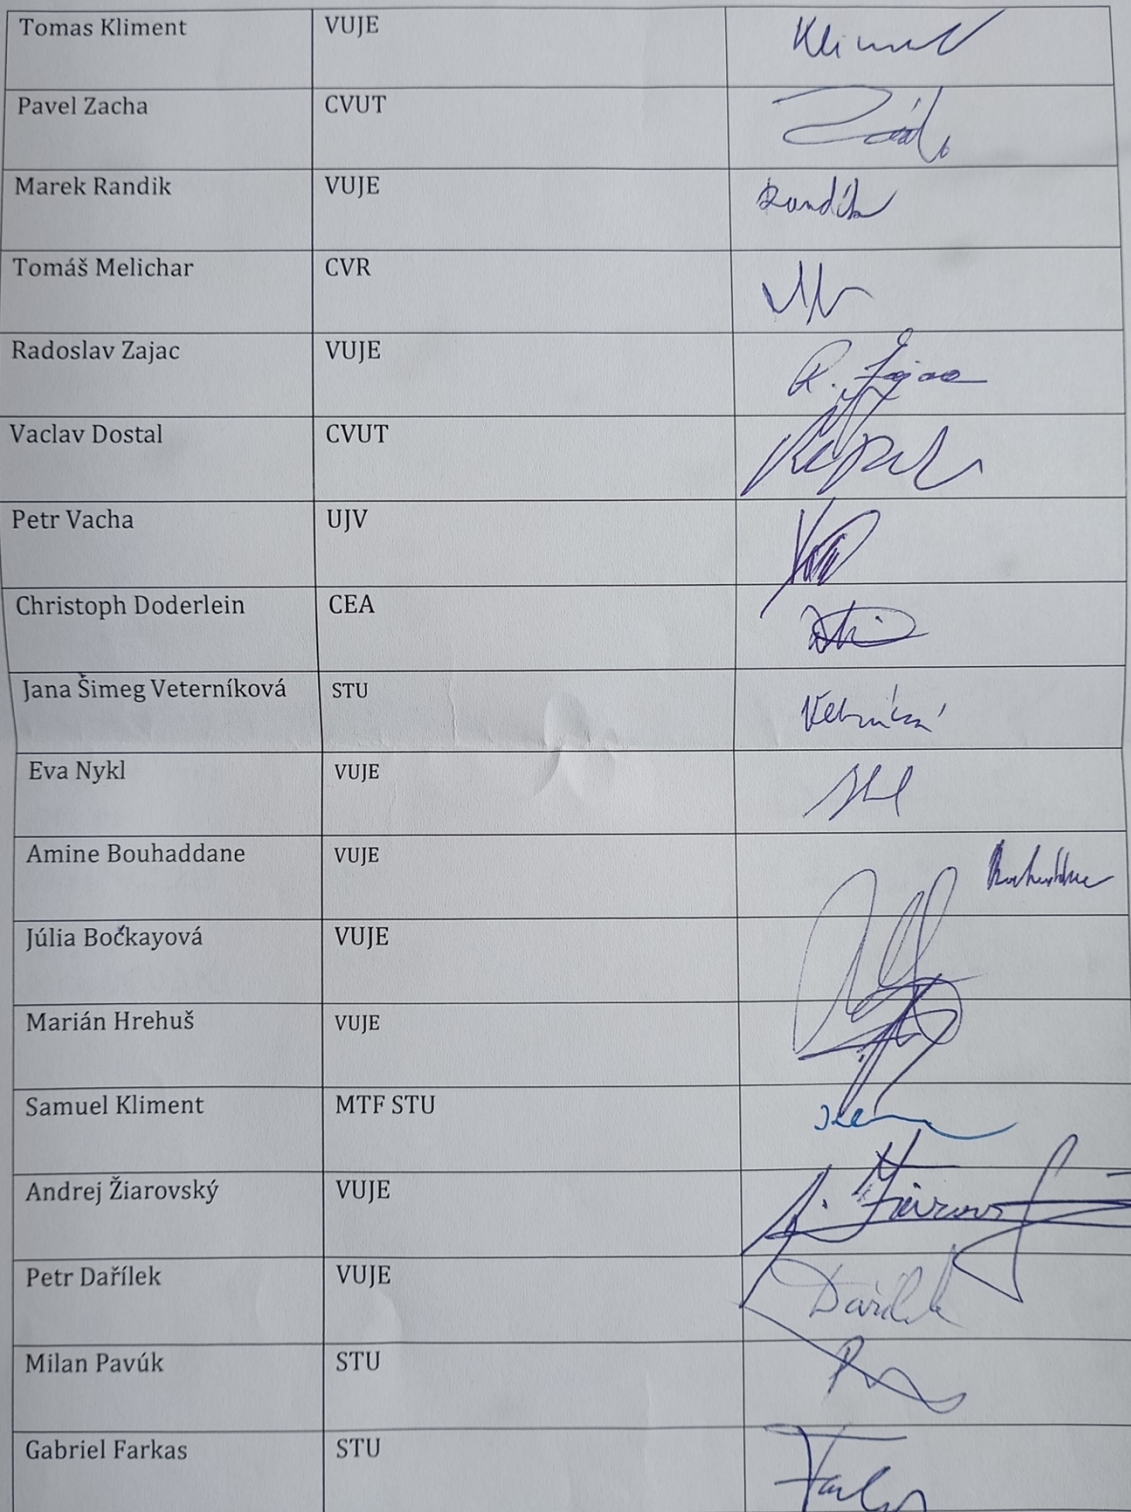 Tomas Kliment VUJE
Pavel Zacha CVUT
Marek Randik VUJE Randík
Tomáš Melichar CVR
Radoslav Zajac VUJE R. Zajac
Vaclav Dostal CVUT
Petr Vacha UJV
Christoph Doderlein CEA
Jana Šimeg Veterníková STU
Eva Nykl VUJE
Amine Bouhaddane VUJE
Júlia Bočkayová VUJE
Marián Hrehuš VUJE
Samuel Kliment MTF STU
Andrej Žiarovský VUJE
Petr Dařílek VUJE Dařílek
Milan Pavúk STU
Gabriel Farkas STU